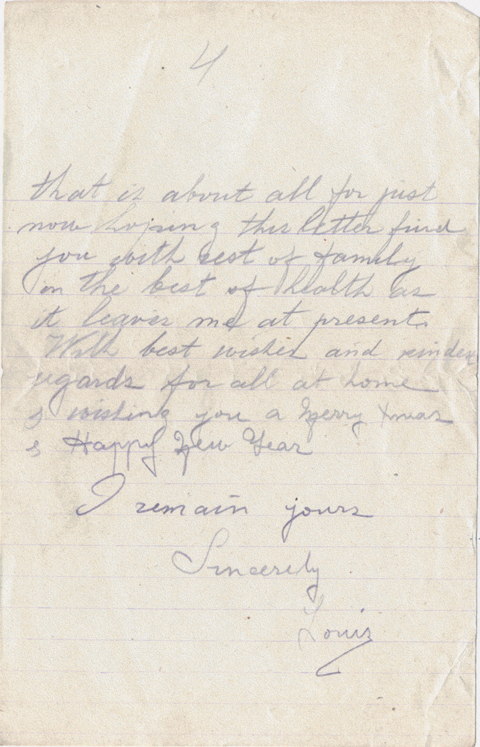 4
that is about all for just
now hoping this letter find
you with rest of family
in the best of health as
it leaves me at present.
With best wishes and
regards for all at home
& wishing you a Merry Xmas
& Happy New Year
I remain yours
Sincerely
Louis